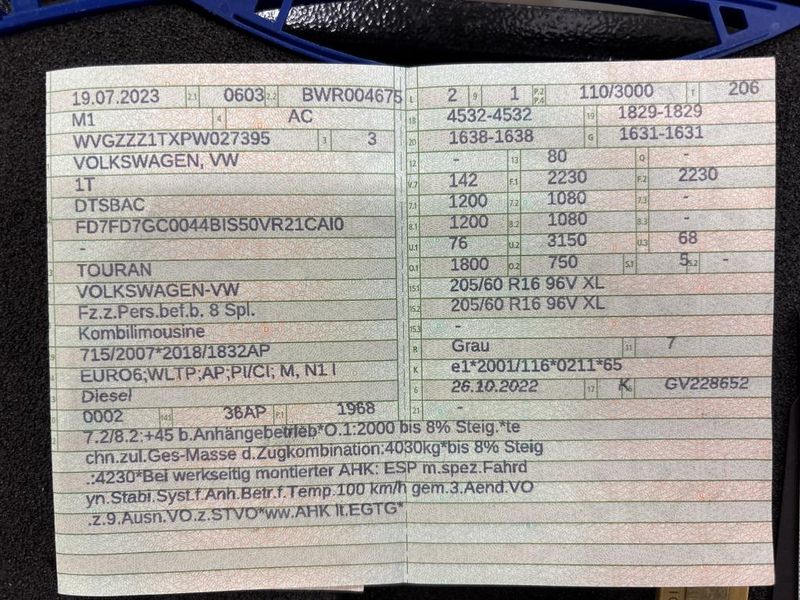 19.07.2023 2.1 0603 2.2 BWR004675
M1 4 AC
WVGZZZ1TXPW027395 3 3
VOLKSWAGEN, VW
1T
DTSBAC
FD7FD7GC0044BIS50VR21CAI0
-
TOURAN
VOLKSWAGEN-VW
Fz.z.Pers.bef.b. 8 Spl.
Kombilimousine
715/2007*2018/1832AP
EURO6;WLTP;AP;PI/CI; M, N1 I
Diesel
0002 14.1 36AP P.1 1968
L 2 9 1 P.2 P.4 110/3000 T 206
18 4532-4532 19 1829-1829
20 1638-1638 G 1631-1631
12 - 13 80 Q -
V.7 142 F.1 2230 F.2 2230
7.1 1200 7.2 1080 7.3 -
8.1 1200 8.2 1080 8.3 -
U.1 76 U.2 3150 U.3 68
O.1 1800 O.2 750 S.1 5 S.2 -
15.1 205/60 R16 96V XL
15.2 205/60 R16 96V XL
15.3 -
R Grau 11 7
K e1*2001/116*0211*65
6 26.10.2022 17 K 16 GV228652
21 -
7.2/8.2:+45 b.Anhängebetrieb*O.1:2000 bis 8% Steig.*te
chn.zul.Ges-Masse d.Zugkombination:4030kg*bis 8% Steig
.:4230*Bei werkseitig montierter AHK: ESP m.spez.Fahrd
yn.Stabi.Syst.f.Anh.Betr.f.Temp.100 km/h gem.3.Aend.VO
.z.9.Ausn.VO.z.STVO*ww.AHK lt.EGTG*